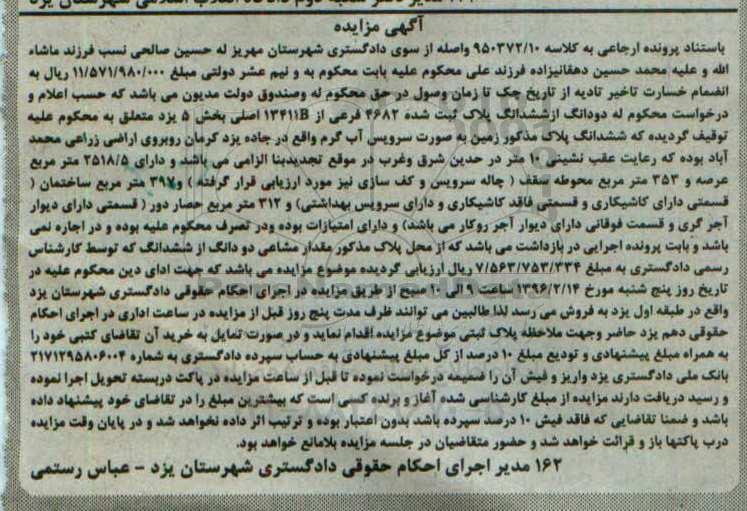 آگهی مزایده
باستناد پرونده ارجاعی به کلاسه ۹۵۰۳۷۲/۱۰ واصله از سوی دادگستری شهرستان مهریز له حسین صالحی نسب فرزند ماشاء
الله و علیه محمد حسین دهقانیزاده فرزند علی محکوم علیه بابت محکوم به و نیم عشر دولتی مبلغ ۱۱/۵۷۱/۹۸۰/۰۰۰ ریال به
انضمام خسارت تاخیر تادیه از تاریخ چک تا زمان وصول در حق محکوم له وصندوق دولت مدیون می باشد که حسب اعلام و
درخواست محکوم له دودانگ ازششدانگ پلاک ثبت شده ۴۶۸۲ فرعی از ۱۳۴۱۱B اصلی بخش ۵ یزد متعلق به محکوم علیه
توقیف گردیده که ششدانگ پلاک مذکور زمین به صورت سرویس آب گرم واقع در جاده یزد کرمان روبروی اراضی زراعی محمد
آباد بوده که رعایت عقب نشینی ۱۰ متر در حدین شرق وغرب در موقع تجدیدبنا الزامی می باشد و دارای ۲۵۱۸/۵ متر مربع
عرصه و ۳۵۳ متر مربع محوطه سقف ( چاله سرویس و کف سازی نیز مورد ارزیابی قرار گرفته ) و۳۹۷ متر مربع ساختمان (
قسمتی دارای کاشیکاری و قسمتی فاقد کاشیکاری و دارای سرویس بهداشتی) و ۳۱۲ متر مربع حصار دور ( قسمتی دارای دیوار
آجر گری و قسمت فوقانی دارای دیوار آجر روکار می باشد) و دارای امتیازات بوده ودر تصرف محکوم علیه بوده و در اجاره نمی
باشد و بابت پرونده اجرایی در بازداشت می باشد که از محل پلاک مذکور مقدار مشاعی دو دانگ از ششدانگ که توسط کارشناس
رسمی دادگستری به مبلغ ۷/۵۶۳/۷۵۳/۳۳۴ ریال ارزیابی گردیده موضوع مزایده می باشد که جهت ادای دین محکوم علیه در
تاریخ روز پنج شنبه مورخ ۱۳۹۶/۲/۱۴ ساعت ۹ الی ۱۰ صبح از طریق مزایده در اجرای احکام حقوقی دادگستری شهرستان یزد
واقع در طبقه اول یزد به فروش می رسد لذا طالبین می توانند ظرف مدت پنج روز قبل از مزایده در ساعت اداری در اجرای احکام
حقوقی دهم یزد حاضر وجهت ملاحظه پلاک ثبتی موضوع مزایده اقدام نماید و در صورت تمایل به خرید آن تقاضای کتبی خود را
به همراه مبلغ پیشنهادی و تودیع مبلغ ۱۰ درصد از کل مبلغ پیشنهادی به حساب سپرده دادگستری به شماره ۲۱۷۱۲۹۵۸۰۶۰۰۴
بانک ملی دادگستری یزد واریز و فیش آن را ضمیمه درخواست نموده تا قبل از ساعت مزایده در پاکت دربسته تحویل اجرا نموده
و رسید دریافت دارند مزایده از مبلغ کارشناسی شده آغاز و برنده کسی است که بیشترین مبلغ را در تقاضای خود پیشنهاد داده
باشد و ضمنا تقاضایی که فاقد فیش ۱۰ درصد سپرده باشد بدون اعتبار بوده و ترتیب اثر داده نخواهد شد و در پایان وقت مزایده
درب پاکتها باز و قرائت خواهد شد و حضور متقاضیان در جلسه مزایده بلامانع خواهد بود.
۱۶۲ مدیر اجرای احکام حقوقی دادگستری شهرستان یزد - عباس رستمی